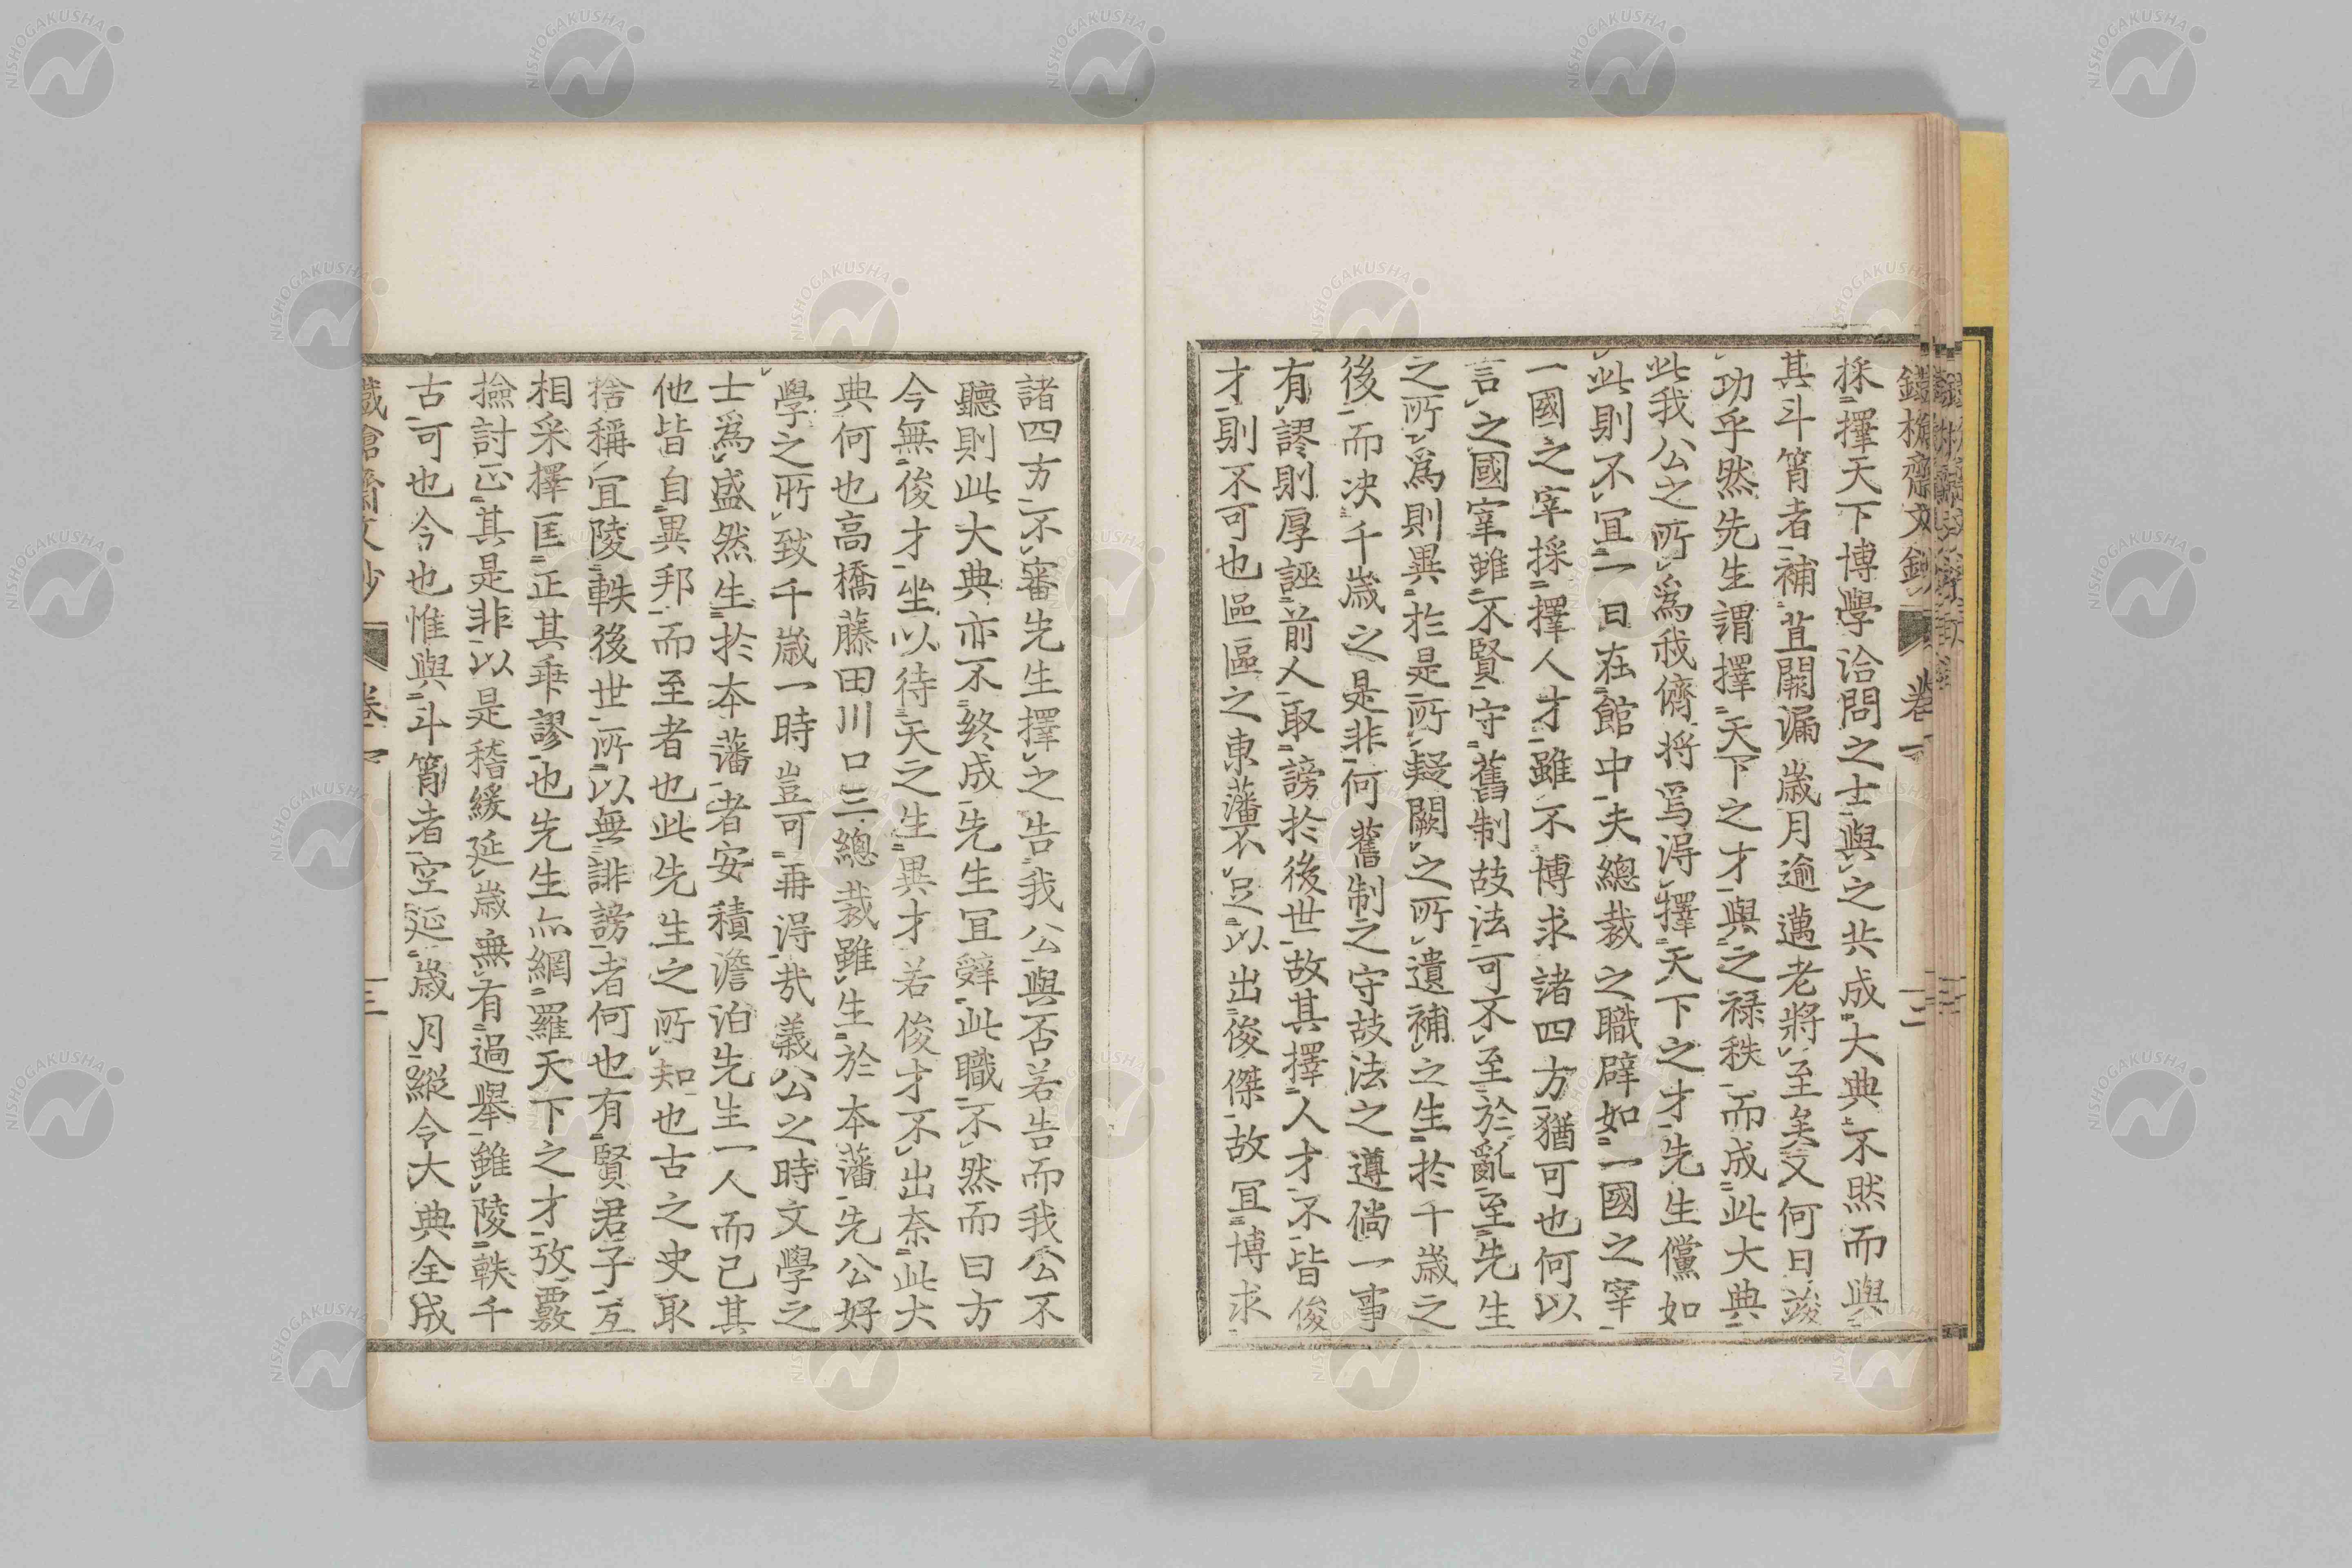 採擇天下博學洽問之士與之共成大典不然而與
其斗筲者補苴闕漏歳月逾邁老將至矣又何日竣
功乎然先生謂擇天下之才與之祿秩而成此大典
此我公之所爲我儕將焉得擇天下之才先生儻如
此則不宜一日在館中夫總裁之職辟如一國之宰
一國之宰採擇人才雖不博求諸四方猶可也何以
言之國宰雖不賢守舊制故法可不至於亂至先生
之所爲則異於是所疑闕之所遺補之生於千歳之
後而决千歳之是非何舊制之守故法之遵倘一事
有謬則厚誣前人取謗於後世故其擇人才不皆俊
才則不可也區區之東藩不足以出俊傑故宜博求
諸四方不審先生擇之告我公與否若告而我公不
聽則此大典亦不終成先生宜辭此職不然而曰方
今無俊才坐以待天之生異才若俊才不出奈此大
典何也高橋藤田川口三總裁雖生於本藩先公好
學之所致千歳一時豈可再得哉義公之時文學之
士爲盛然生於本藩者安積澹泊先生一人而已其
他皆自異邦而至者也此先生之所知也古之史取
捨稱宜陵軼後世所以無誹謗者何也有賢君子互
相采擇匡正其乖謬也先生亦網羅天下之才攷覈
撿討正其是非以是稽緩延歳無有過舉雖陵軼千
古可也今也惟與斗筲者空延歳月縱令大典全成
鐵槍齋文鈔 卷下 二
三
NISHOGAKUSHA